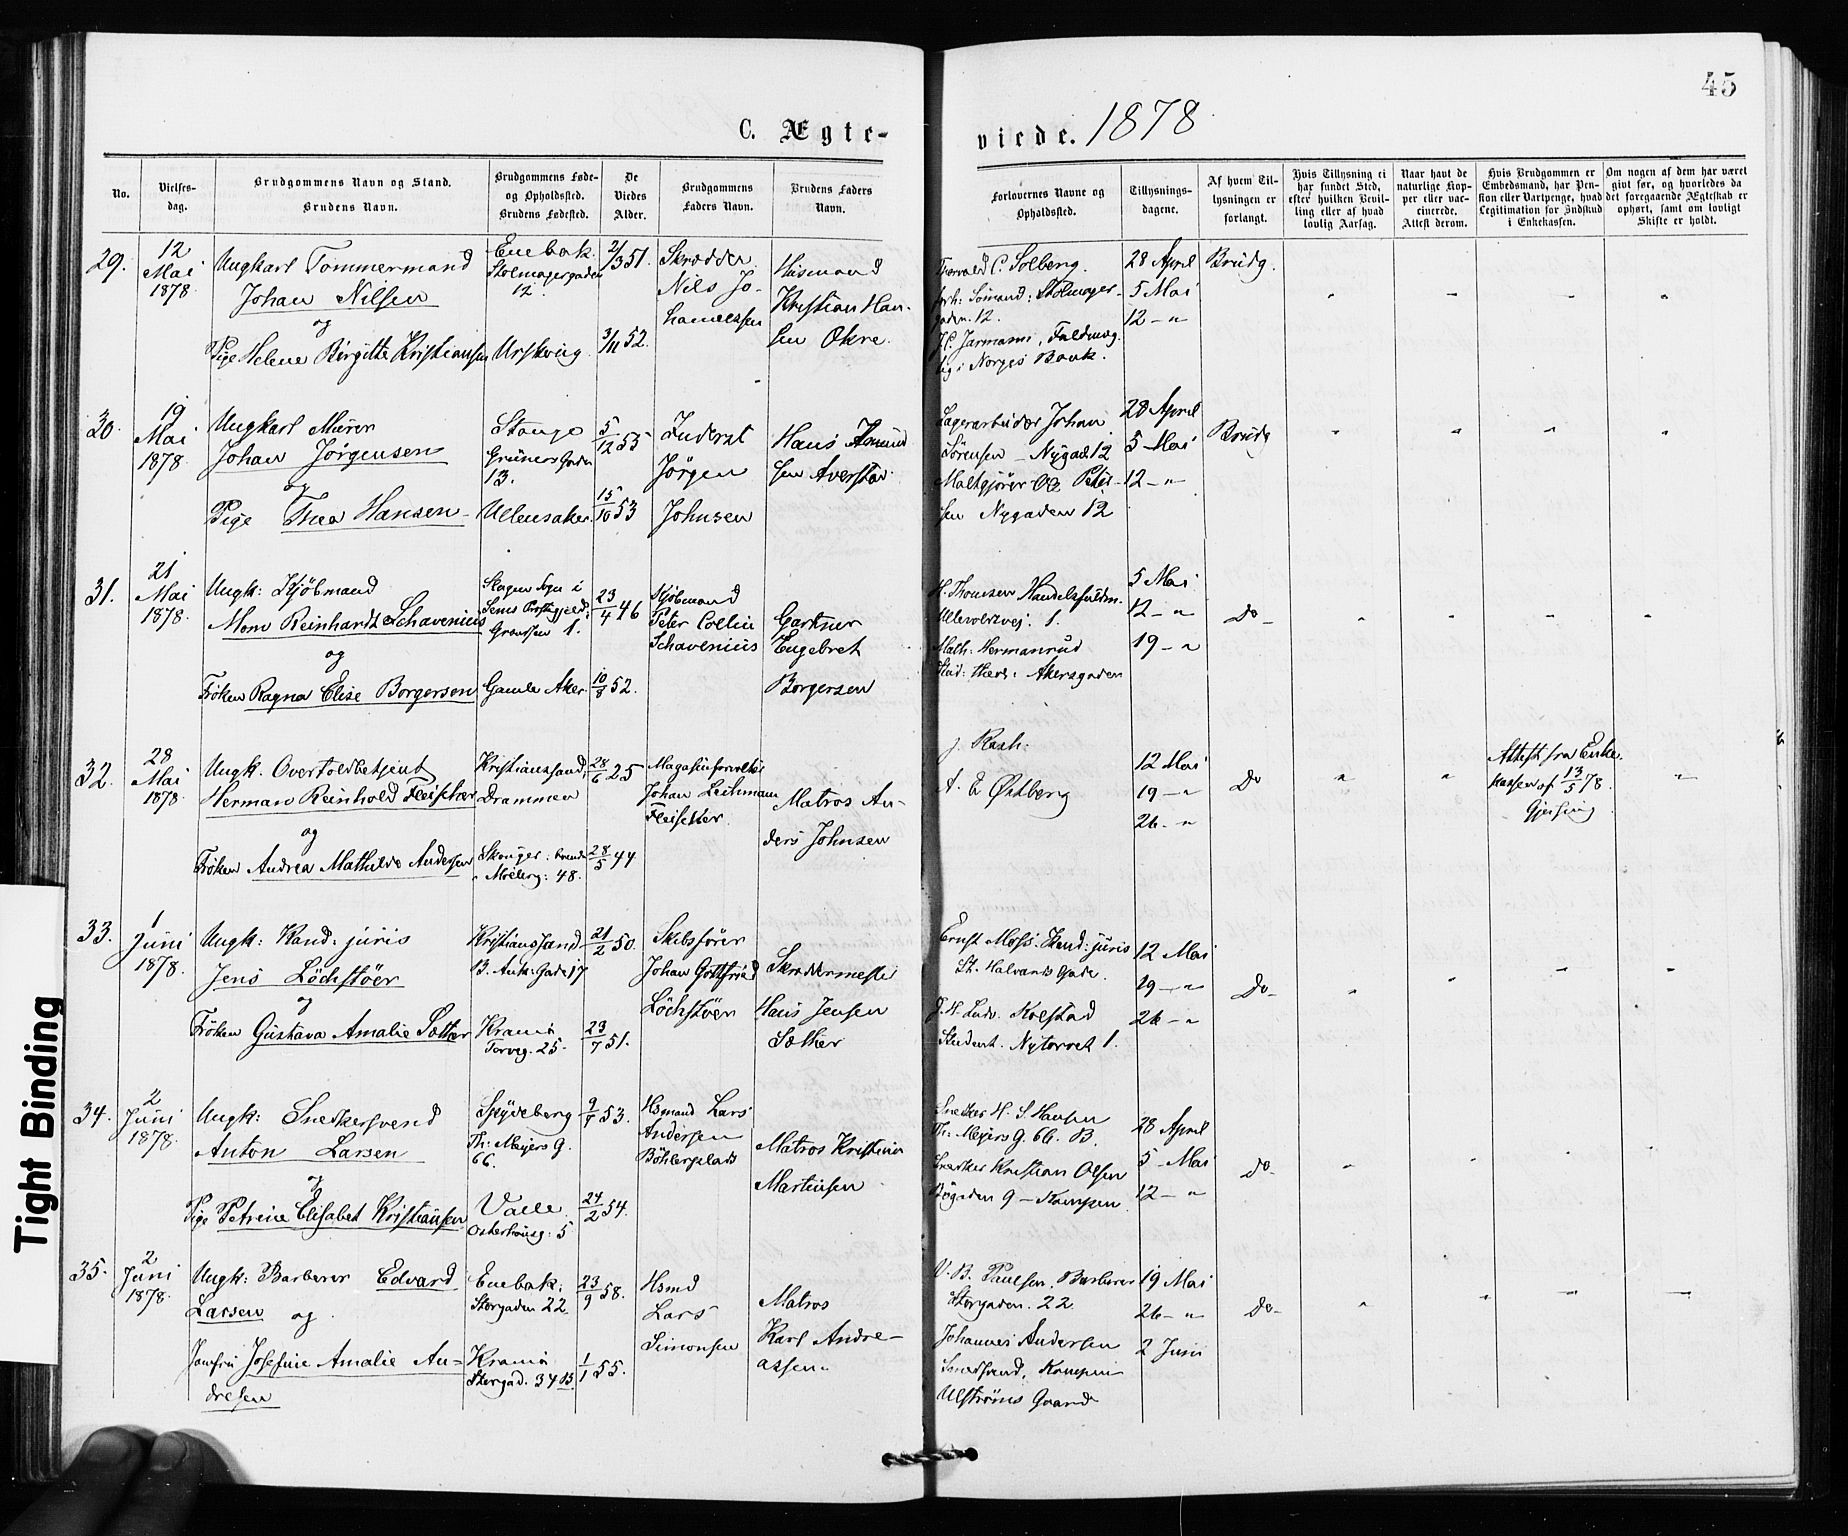 45
C. Ægte- viede. 1878
No.
Vielses-
dag.
Brudgommens Navn og Stand.
Brudens Navn.
Brudgommens Føde-
og Opholdssted.
Brudens Fødested.
De
Viedes
Alder.
Brudgommens
Faders Navn.
Brudens Faders
Navn.
Forlovernes Navne og
Opholdssted.
Tillysnings-
dagene.
Af hvem Til-
lysningen er
forlangt.
Hvis Tillysning ei
har fundet Sted,
efter hvilken Bevil-
ling eller af hvad
lovlig Aarsag.
Naar havt de
naturlige Kop-
per eller vac-
cinerede.
Attest derom.
Hvis Brudgommen er
Embedsmand, har Pen-
sion eller Vartpenge, hvad
Legitimation for Indskud
i Enkekassen.
Om nogen af dem har været
givt før, og hvorledes da
det foregaaende Ægteskab er
ophørt, samt om lovligt
Skifte er holdt.
29.
12
Mai
1878.
Ungkarl Tømmermand
Johan Nilsen
og
Pige Helene Birgitte Kristiansen
Enebak.
Stolmagergaden
12.
Urskoug
2/3 51.
3/11 52.
Skrædder
Nils Jo-
hannessen
Husmand
Kristian Han-
sen Økre.
Thorvald C. Solberg.
forh: Sømand: Stolmager-
gaden. 12.
H. Jarmann, Fuldmæg
tig i Norges Bank.
28 April
5 Mai
12 - "
Brudg.
30.
19
Mai
1878.
Ungkarl Murer
Johan Jørgensen
og
Pige Thea Hansen
Stange
Grüners Gaden
13.
Ullensaker.
5/12 55
15/10 53
Inderst
Jørgen
Johnsen
Hans Amund
sen Averstad
Lagerarbeider Johan
Sørensen - Nygad 12
Maltgjører Ole Peter-
sen Nygaden 12
28 April
5 Mai
12 - "
Brudg
31.
21
Mai
1878.
Ungk: Kjøbmand
Mons Reinhardt Schavenius
og
Frøken Ragna Elise Borgersen
Slagen Sogn i
Sems Prstgjeld;
Grændsen 1.
Gamle Aker
23/4 46
10/8 52.
Kjøbmand
Peter Collin
Schavenius
Gartner
Engebret
Borgersen
H. Thomsen Handelsfuldm.
Ullevoldsvej. 1.
Math: Hermanrud
Stud: theol: Akersgaden
5 Mai
12 - "
19 - "
Do -
32.
28
Mai
1878.
Ungk. Overtoldbetjent
Herman Reinhold Fleischer
og
Frøken Andrea Mathilde Andersen
Kristianssand;
Drammen
28/6 25
28/5 44
Magasinforvalter
Johan
Fleischer
Matros An-
ders Johnsen
J. Rash.
A. E Østberg
12 Mai
19 - "
26 - "
Do
Attest fra Enke-
kassen af 13/5 78.
33.
1
Juni
1878.
Ungk: Kand: juris
Jens Löchstöer
og
Frøken Gustava Amalie Sæther
Kristianssand
B. Ank: Gade 17
Krania
Torvg. 25 -
21/2 50.
23/7 51.
Skibsfører
Johan Gottfried
Löchstöer
Skræddermester
Hans Jensen
Sæther
Ernst Moss. Kand: juris
St. Halvards Gade.
J. H. Ludv. Kolstad
Student. Nytorvet 1.
12 Mai
19 - "
26 - "
Do -
34.
2
Juni
1878.
Ungk: Snedkersvend
Anton Larsen
og
Pige Petrine Elisabet Kristiansen
Spydeberg
Th: Meyers G.
66.
Vaale
Osterhausg: 5
9/7 53.
24/2 54.
Hsmand Lars
Andersen
Bøhlerplads
Matros Kristian
Martinsen
Snedker H. S. Hansen
Th: Meyers G. 66. B.
Snedker Kristian Olsen
Bøgaden 9 - Kampen
28 April
5 - Mai
12 - "
do -
35.
2
Juni
1878.
Ungk: Barberer Edvard
Larsen og
Jomfru Josefine Amalie An-
dresen
Enebak;
Storgaden 22.
Krania
Storgad. 34 B
23/9 58.
1/1 55.
Hsmd
Lars
Simonsen
Matros
Karl Andre-
assen
V. B. Paulsen. Barberer
Storgaden. 22
Johannes Andersen
Smedsvend, Kampen
Ulstrøms Gaard
19 Mai
26 - "
2 Juni
Do -
Tight Binding